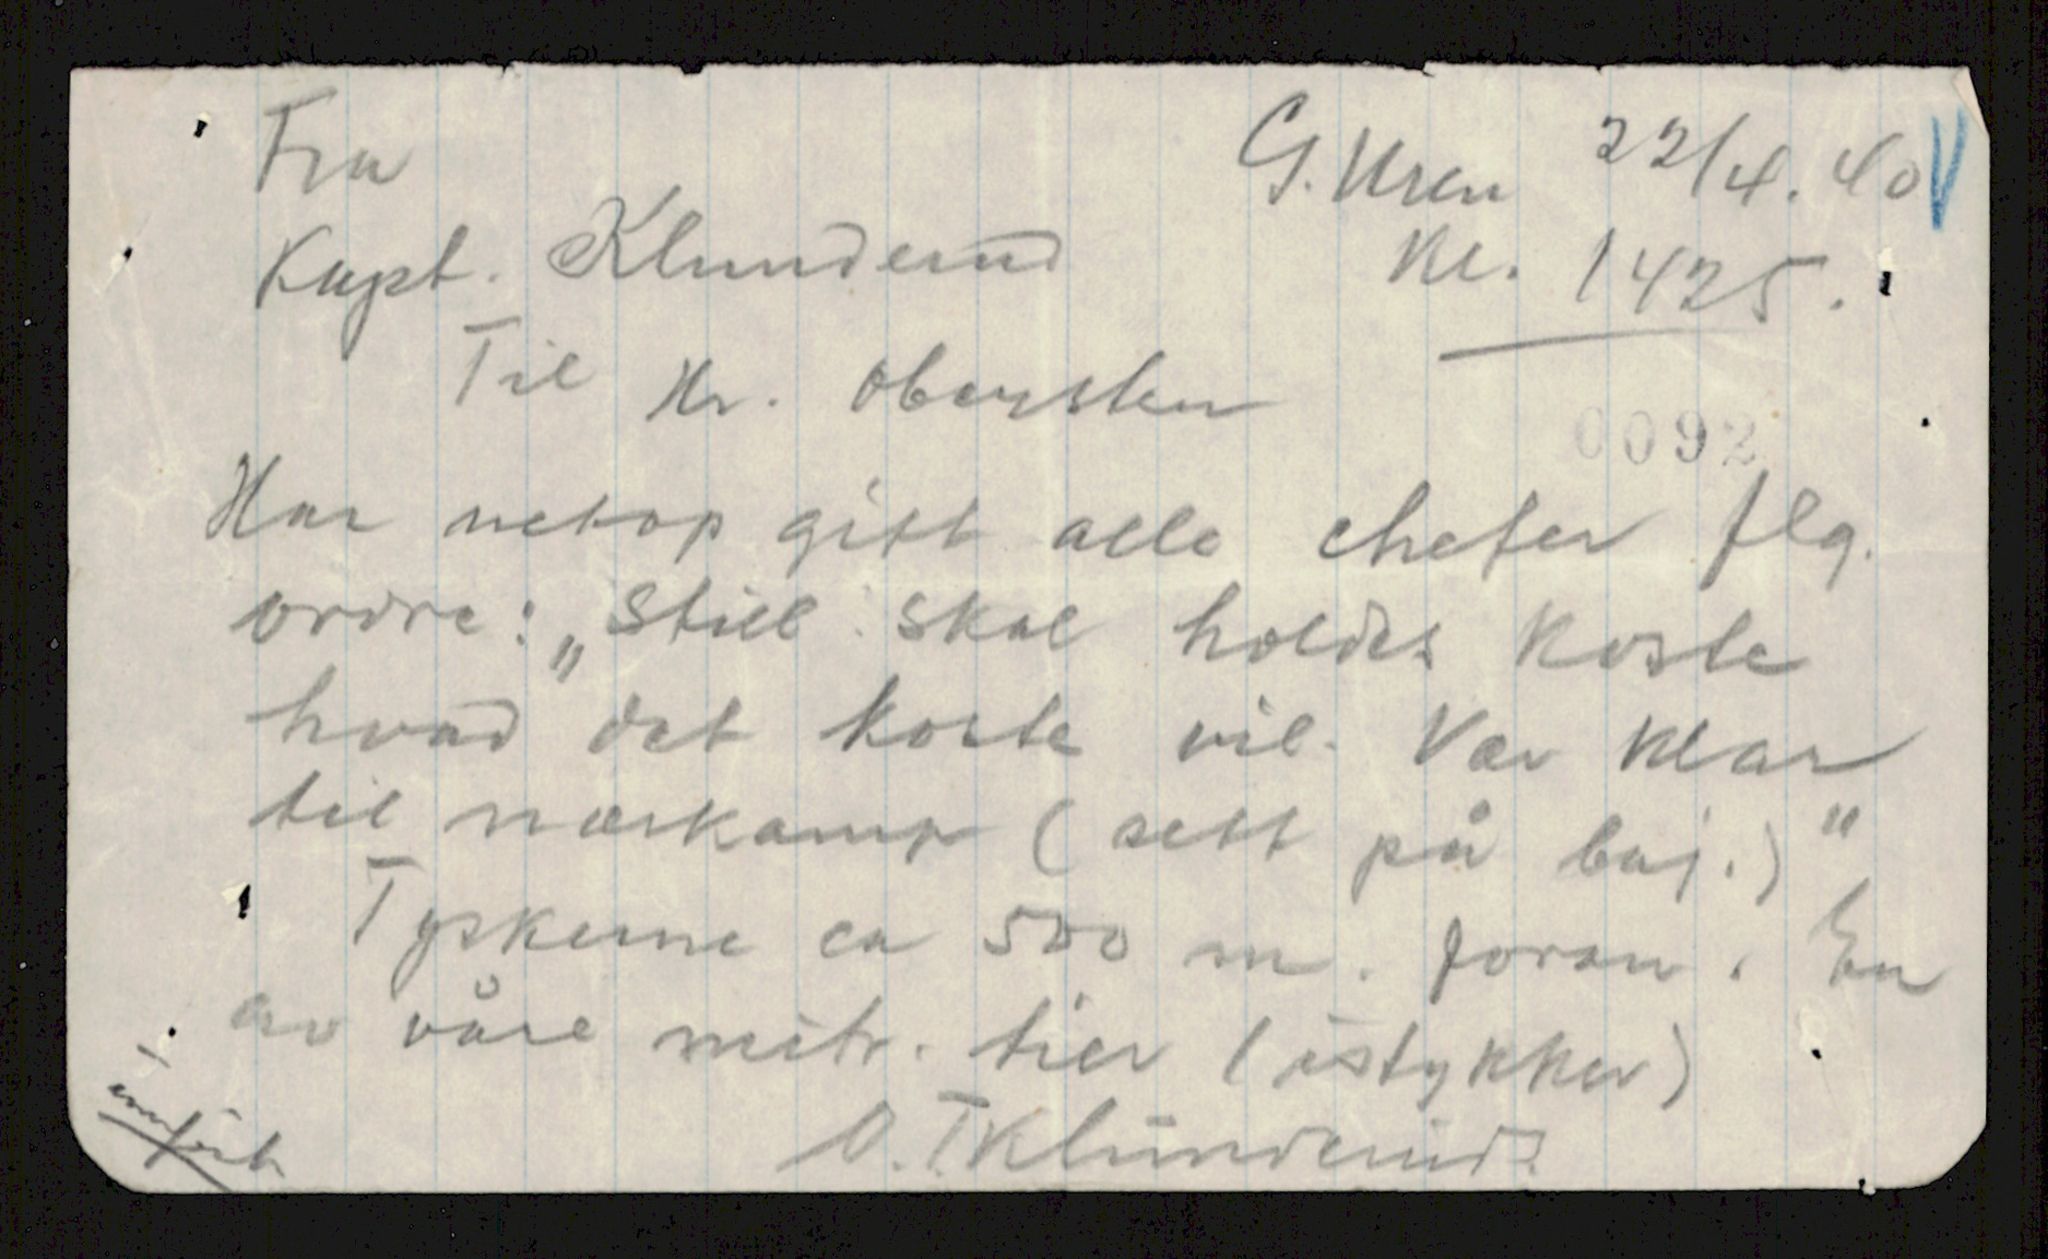 Fra
G. Uren 22/4. 40
Kapt. Klunderud
Kl. 1425.
Til Hr. Obersten
0092
Har netop gitt alle chefer flg.
ordre: „Still. skal holdes koste
hvad det koste vil. Vær klar
til nærkamp (sett på baj.)"
Tyskerne ca 500 m. foran. En
av våre mitr. tier (istykker)
O.T. Klünderüd.
innført